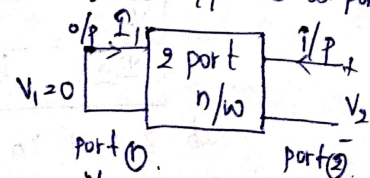 o/p I₁ i/p
2 port
n/w
V₁=0
+
V₂
-
port ①.
port ②.